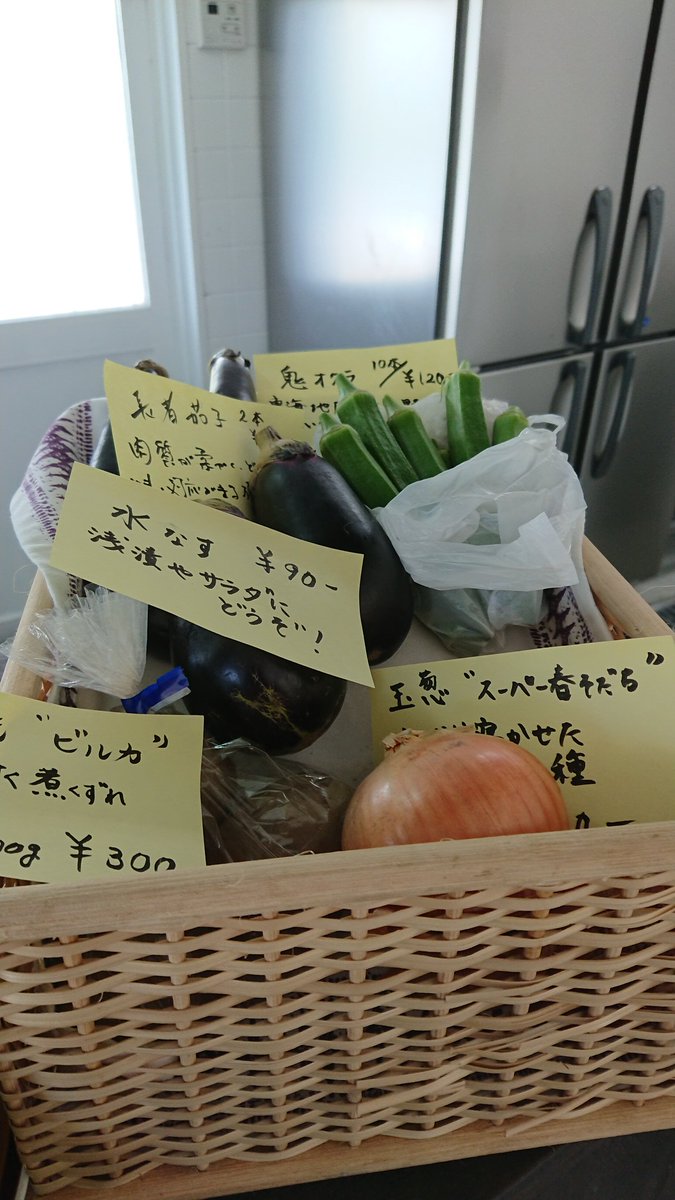 鬼オクラ 10本/¥120
長者茄子 2本
肉質が柔かく、
水なす ¥90-
浅漬やサラダに
どうぞ!
玉葱 "スーパー春そだち"
寝かせた
種
"ビルカ"
く煮くずれ
00g ¥300